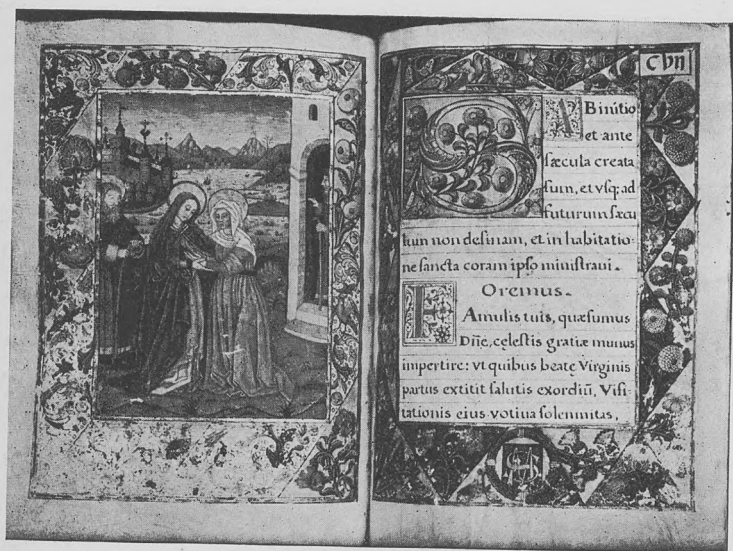 CVII
AB inítio
et ante
sæcula creata
sum, et vsq; ad
futurum sæcu
lum non desinam, et in habitatio-
ne sancta coram ipso ministraui.
Oremus.
FAmulis tuis, quæsumus
Dñe, cęlestis gratiæ munus
impertire: vt quibus beatę Virginis
partus extitit salutis exordiũ, Visi-
tationis eius votiua solennitas,